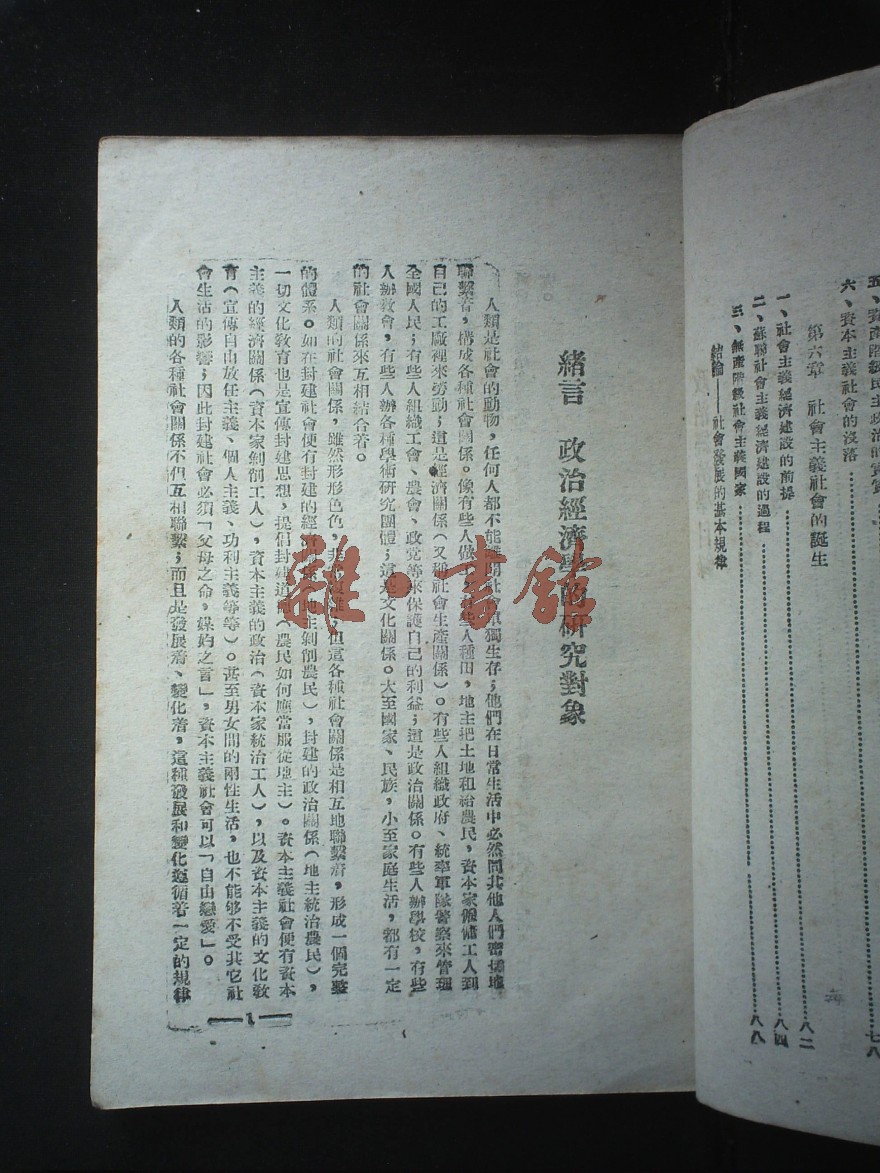 五、資產階級民主政治的實質
六、資本主義社會的沒落……七八
第六章 社會主義社會的誕生
一、社會主義經濟建設的前提……八二
二、蘇聯社會主義經濟建設的過程……八四
三、無產階級社會主義國家……八八
結論——社會發展的基本規律
緒言 政治經濟學的研究對象
人類是社會的動物，任何人都不能離開社會單獨生存；他們在日常生活中必然同其他人們密切地
聯繫着，構成各種社會關係。像有些人做工，有些人種田，地主把土地租給農民，資本家僱傭工人到
自己的工廠裡來勞動；這是經濟關係（又稱社會生產關係）。有些人組織政府、統率軍隊警察來管理
全國人民；有些人組織工會、農會、政党等來保護自己的利益；這是政治關係。有些人辦學校，有些
人辦教會，有些人辦各種學術研究團體；這是文化關係。大至國家、民族，小至家庭生活，都有一定
的社會關係來互相結合着。
人類的社會關係，雖然形形色色，非常複雜，但這各種社會關係是相互地聯繫着，形成一個完整
的體系。如在封建社會便有封建的經濟關係（地主剝削農民），封建的政治關係（地主統治農民），
一切文化敎育也是宣傳封建思想，提倡封建道德（農民如何應當服從地主）。資本主義社會便有資本
主義的經濟關係（資本家剝削工人），資本主義的政治（資本家統治工人），以及資本主義的文化敎
育（宣傳自由放任主義、個人主義、功利主義等等）。甚至男女間的兩性生活，也不能够不受其它社
會生活的影響；因此封建社會必須「父母之命，媒妁之言」，資本主義社會可以「自由戀愛」。
人類的各種社會關係不但互相聯繫；而且是發展着、變化着，這種發展和變化遵循着一定的規律
1
雜·書館